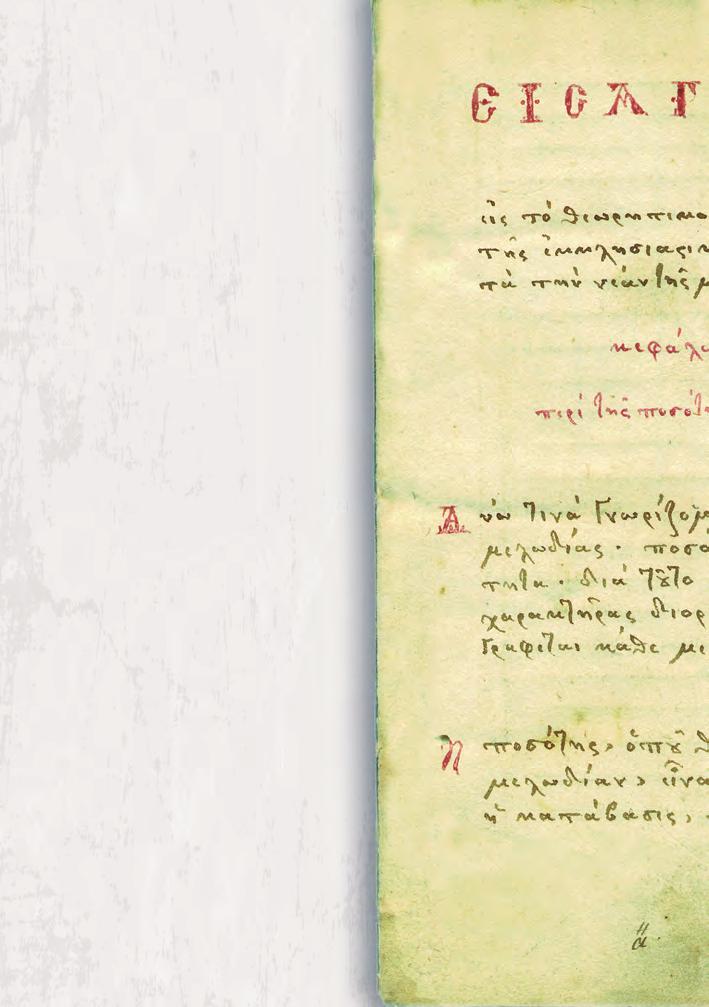 ΕΙΣΑΓ
εἰς τὸ θεωρητικὸ
τῆς ἐκκλησιαςικ
τὰ τὴν νέαν τῆς μ
κεφάλα
περὶ τῆς ποσότη
Δύω τινὰ γνωρίζομε
μελωδίας · ποσό
τητα · διὰ τȣ͂το
χαρακτῆρας διορ
γραφεται κάθε με
Η ποσότης, ὁπȣ̃ θ
μελωδίαν, εἶνα
ἡ κατάβασις,
α